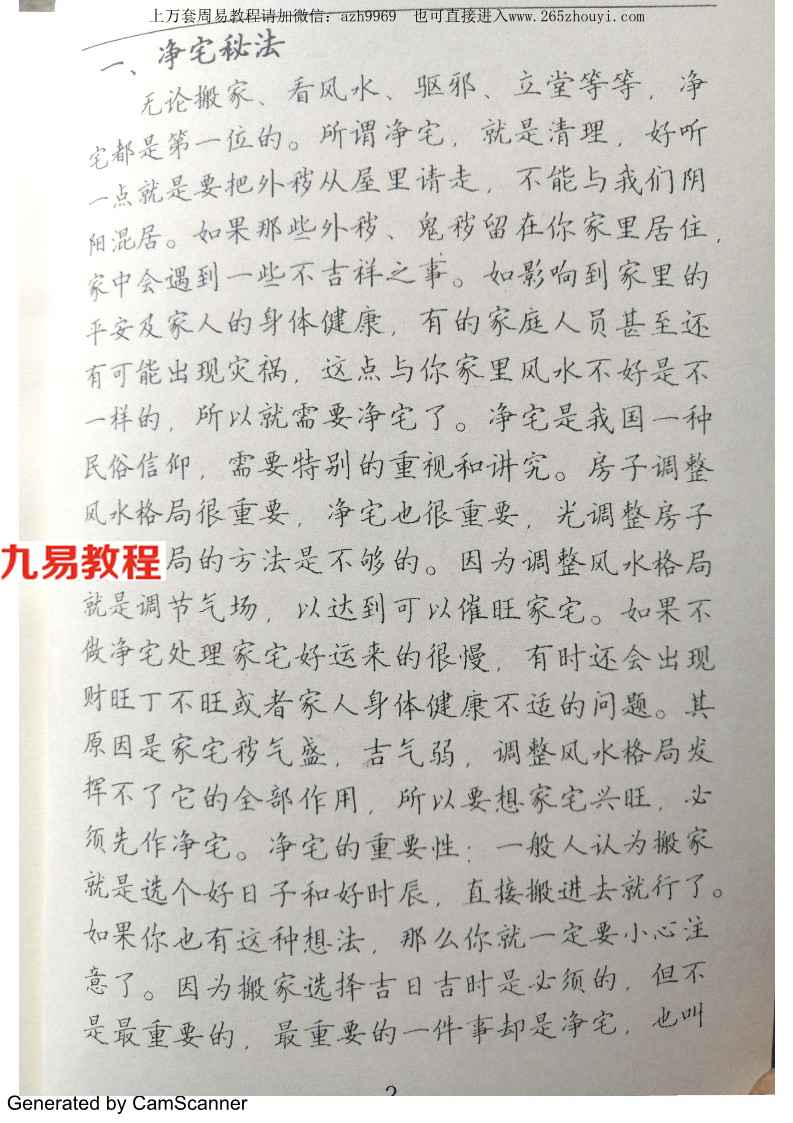 上万套周易教程请加微信：azh9969 也可直接进入www.265zhouyi.com
一、净宅秘法
无论搬家、看风水、驱邪、立堂等等，净
宅都是第一位的。所谓净宅，就是清理，好听
一点就是要把外秽从屋里请走，不能与我们阴
阳混居。如果那些外秽、鬼秽留在你家里居住，
家中会遇到一些不吉祥之事。如影响到家里的
平安及家人的身体健康，有的家庭人员甚至还
有可能出现灾祸，这点与你家里风水不好是不
一样的，所以就需要净宅了。净宅是我国一种
民俗信仰，需要特别的重视和讲究。房子调整
风水格局很重要，净宅也很重要，光调整房子
九易教程
局的方法是不够的。因为调整风水格局
就是调节气场，以达到可以催旺家宅。如果不
做净宅处理家宅好运来的很慢，有时还会出现
财旺丁不旺或者家人身体健康不适的问题。其
原因是家宅秽气盛，吉气弱，调整风水格局发
挥不了它的全部作用，所以要想家宅兴旺，必
须先作净宅。净宅的重要性：一般人认为搬家
就是选个好日子和好时辰，直接搬进去就行了。
如果你也有这种想法，那么你就一定要小心注
意了。因为搬家选择吉日吉时是必须的，但不
是最重要的，最重要的一件事却是净宅，也叫
Generated by CamScanner